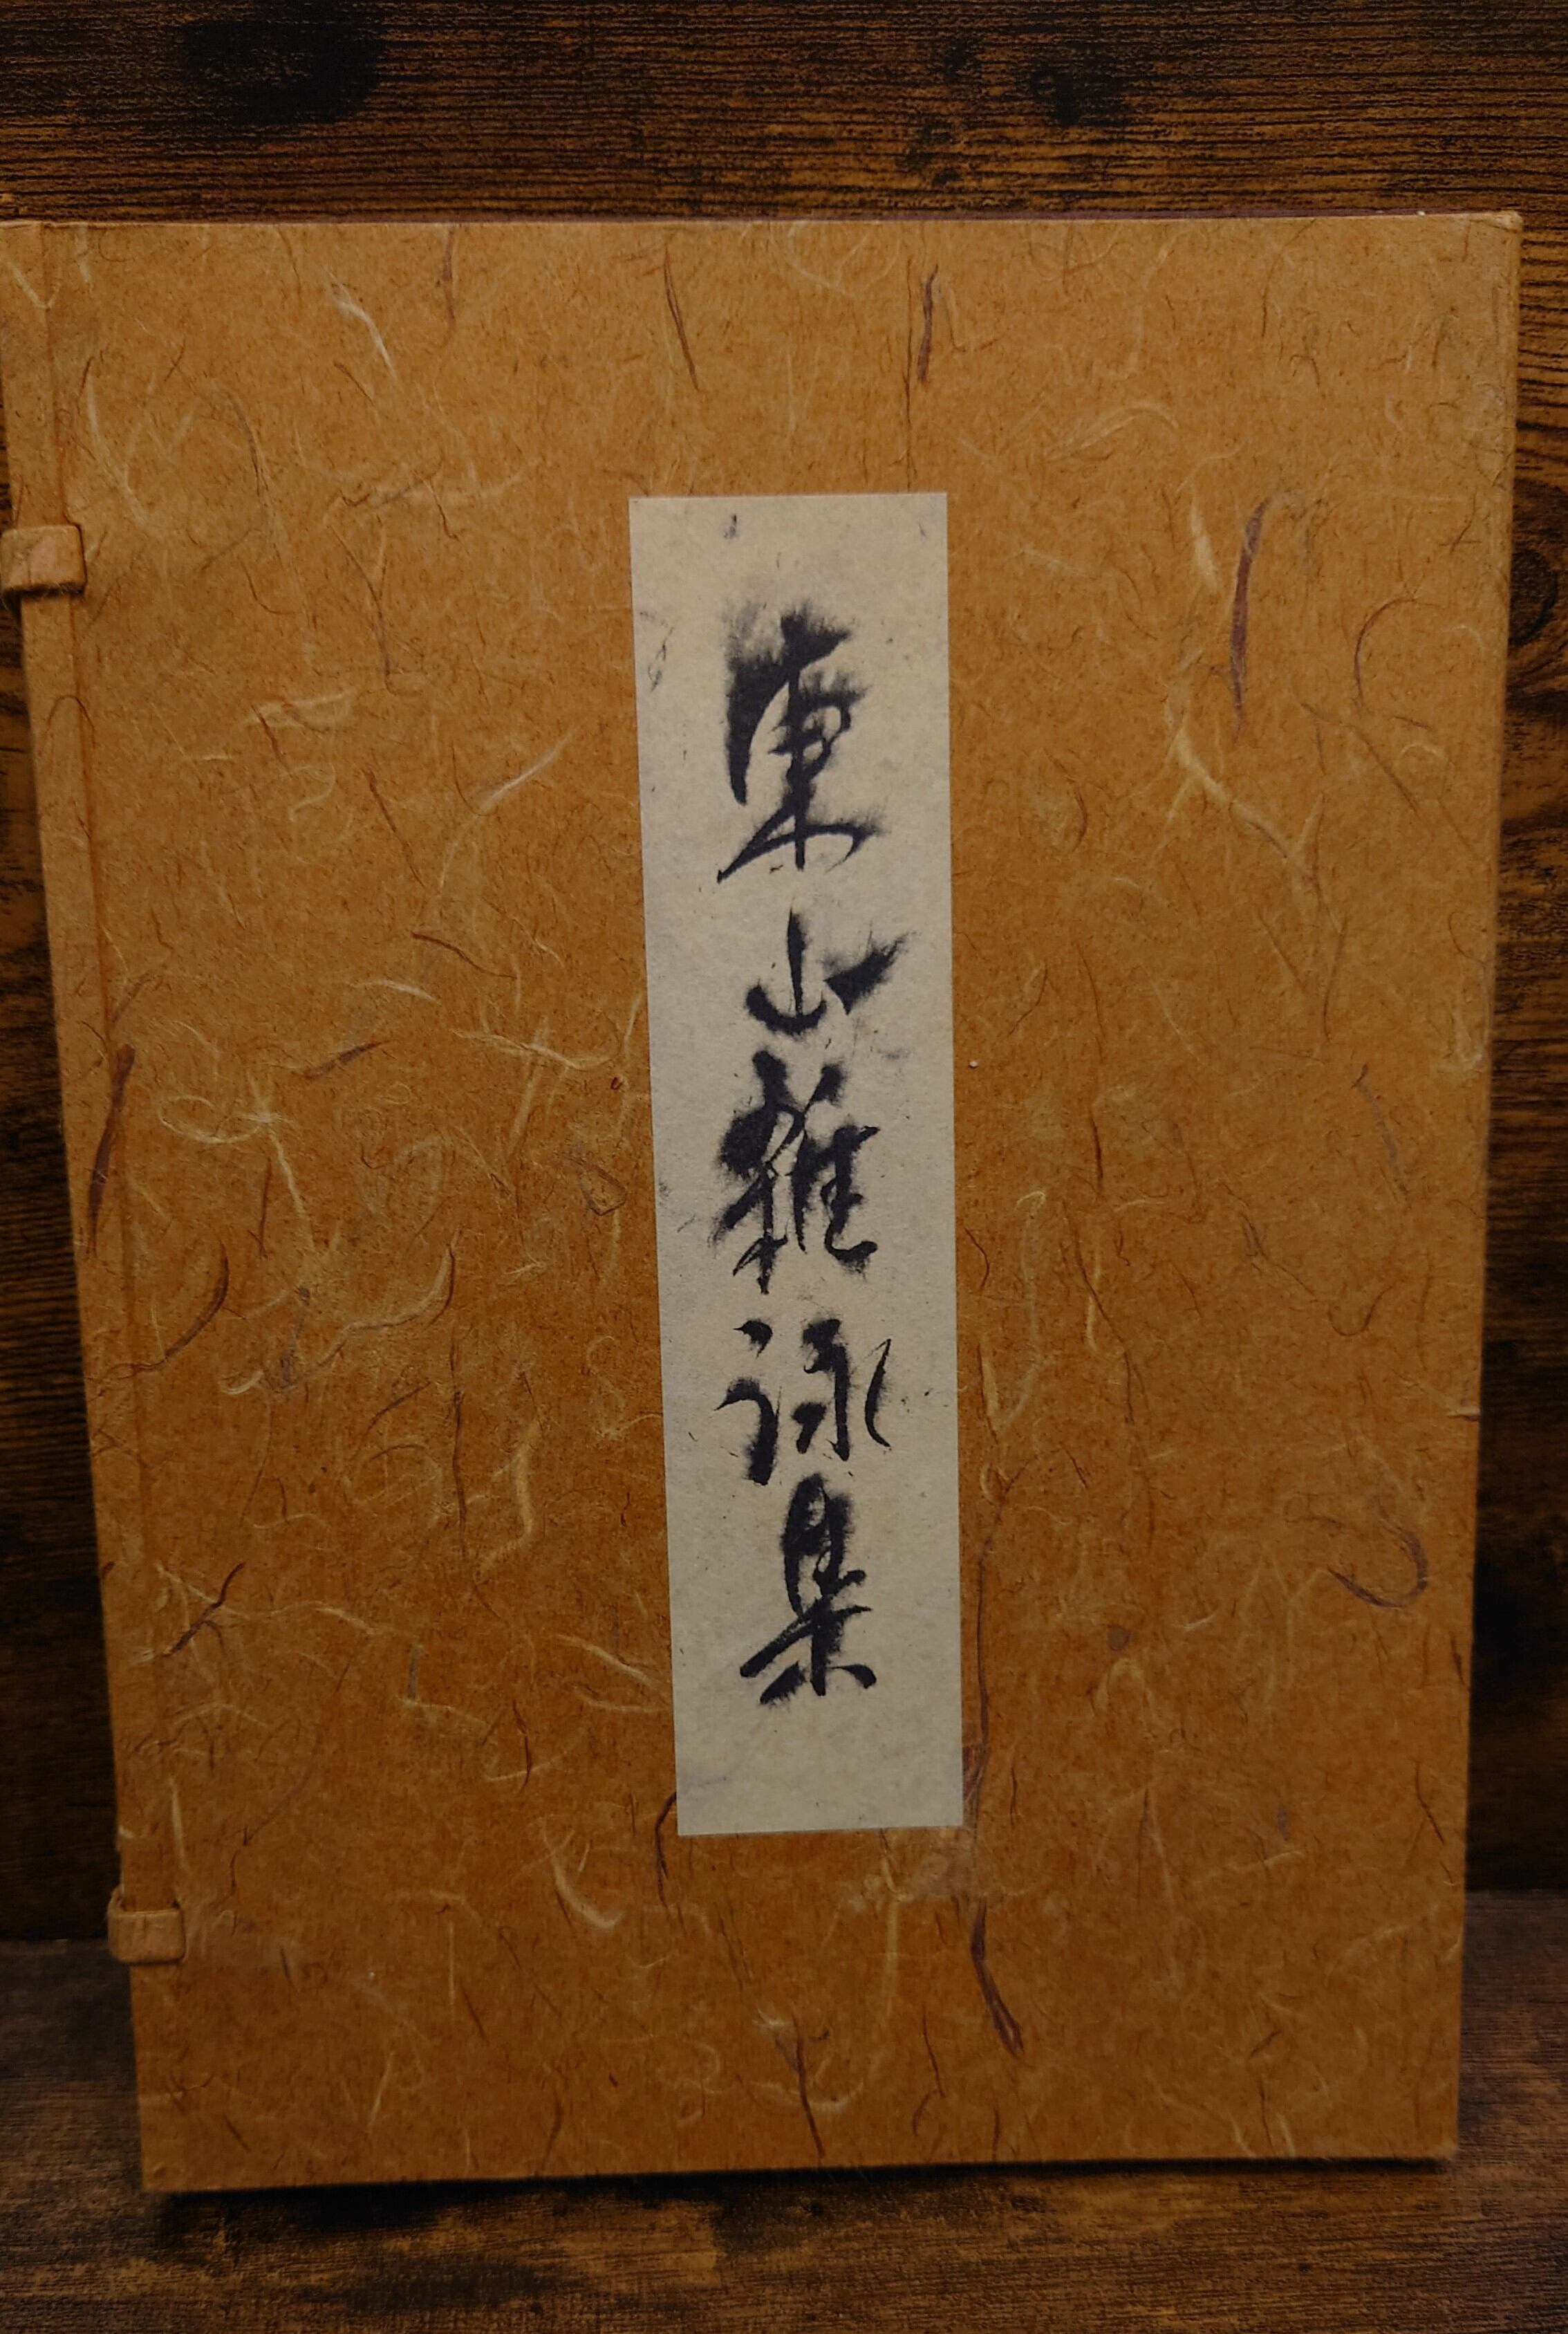 東山雜詠集